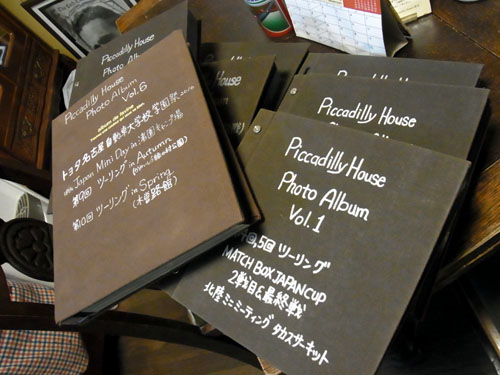 Piccadilly House
Photo Album
Piccadilly House
Photo Album
Vol.6
トヨタ名古屋自動車大学校 学園祭 2010
4th Japan Mini Day in 浜園
第9回 ツーリング in Autumn
第10回 ツーリング in Spring
(木曽路館)
House
Album
Piccadilly House
Piccadilly House
Photo Album
Vol.1
回,5回 ツーリング
MATCH BOX JAPAN CUP
2戦目&最終戦
北陸ミニミーティング タカスサーキット